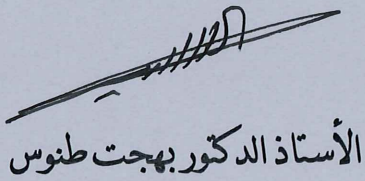 الأستاذ الدكتور بهجت طنوس